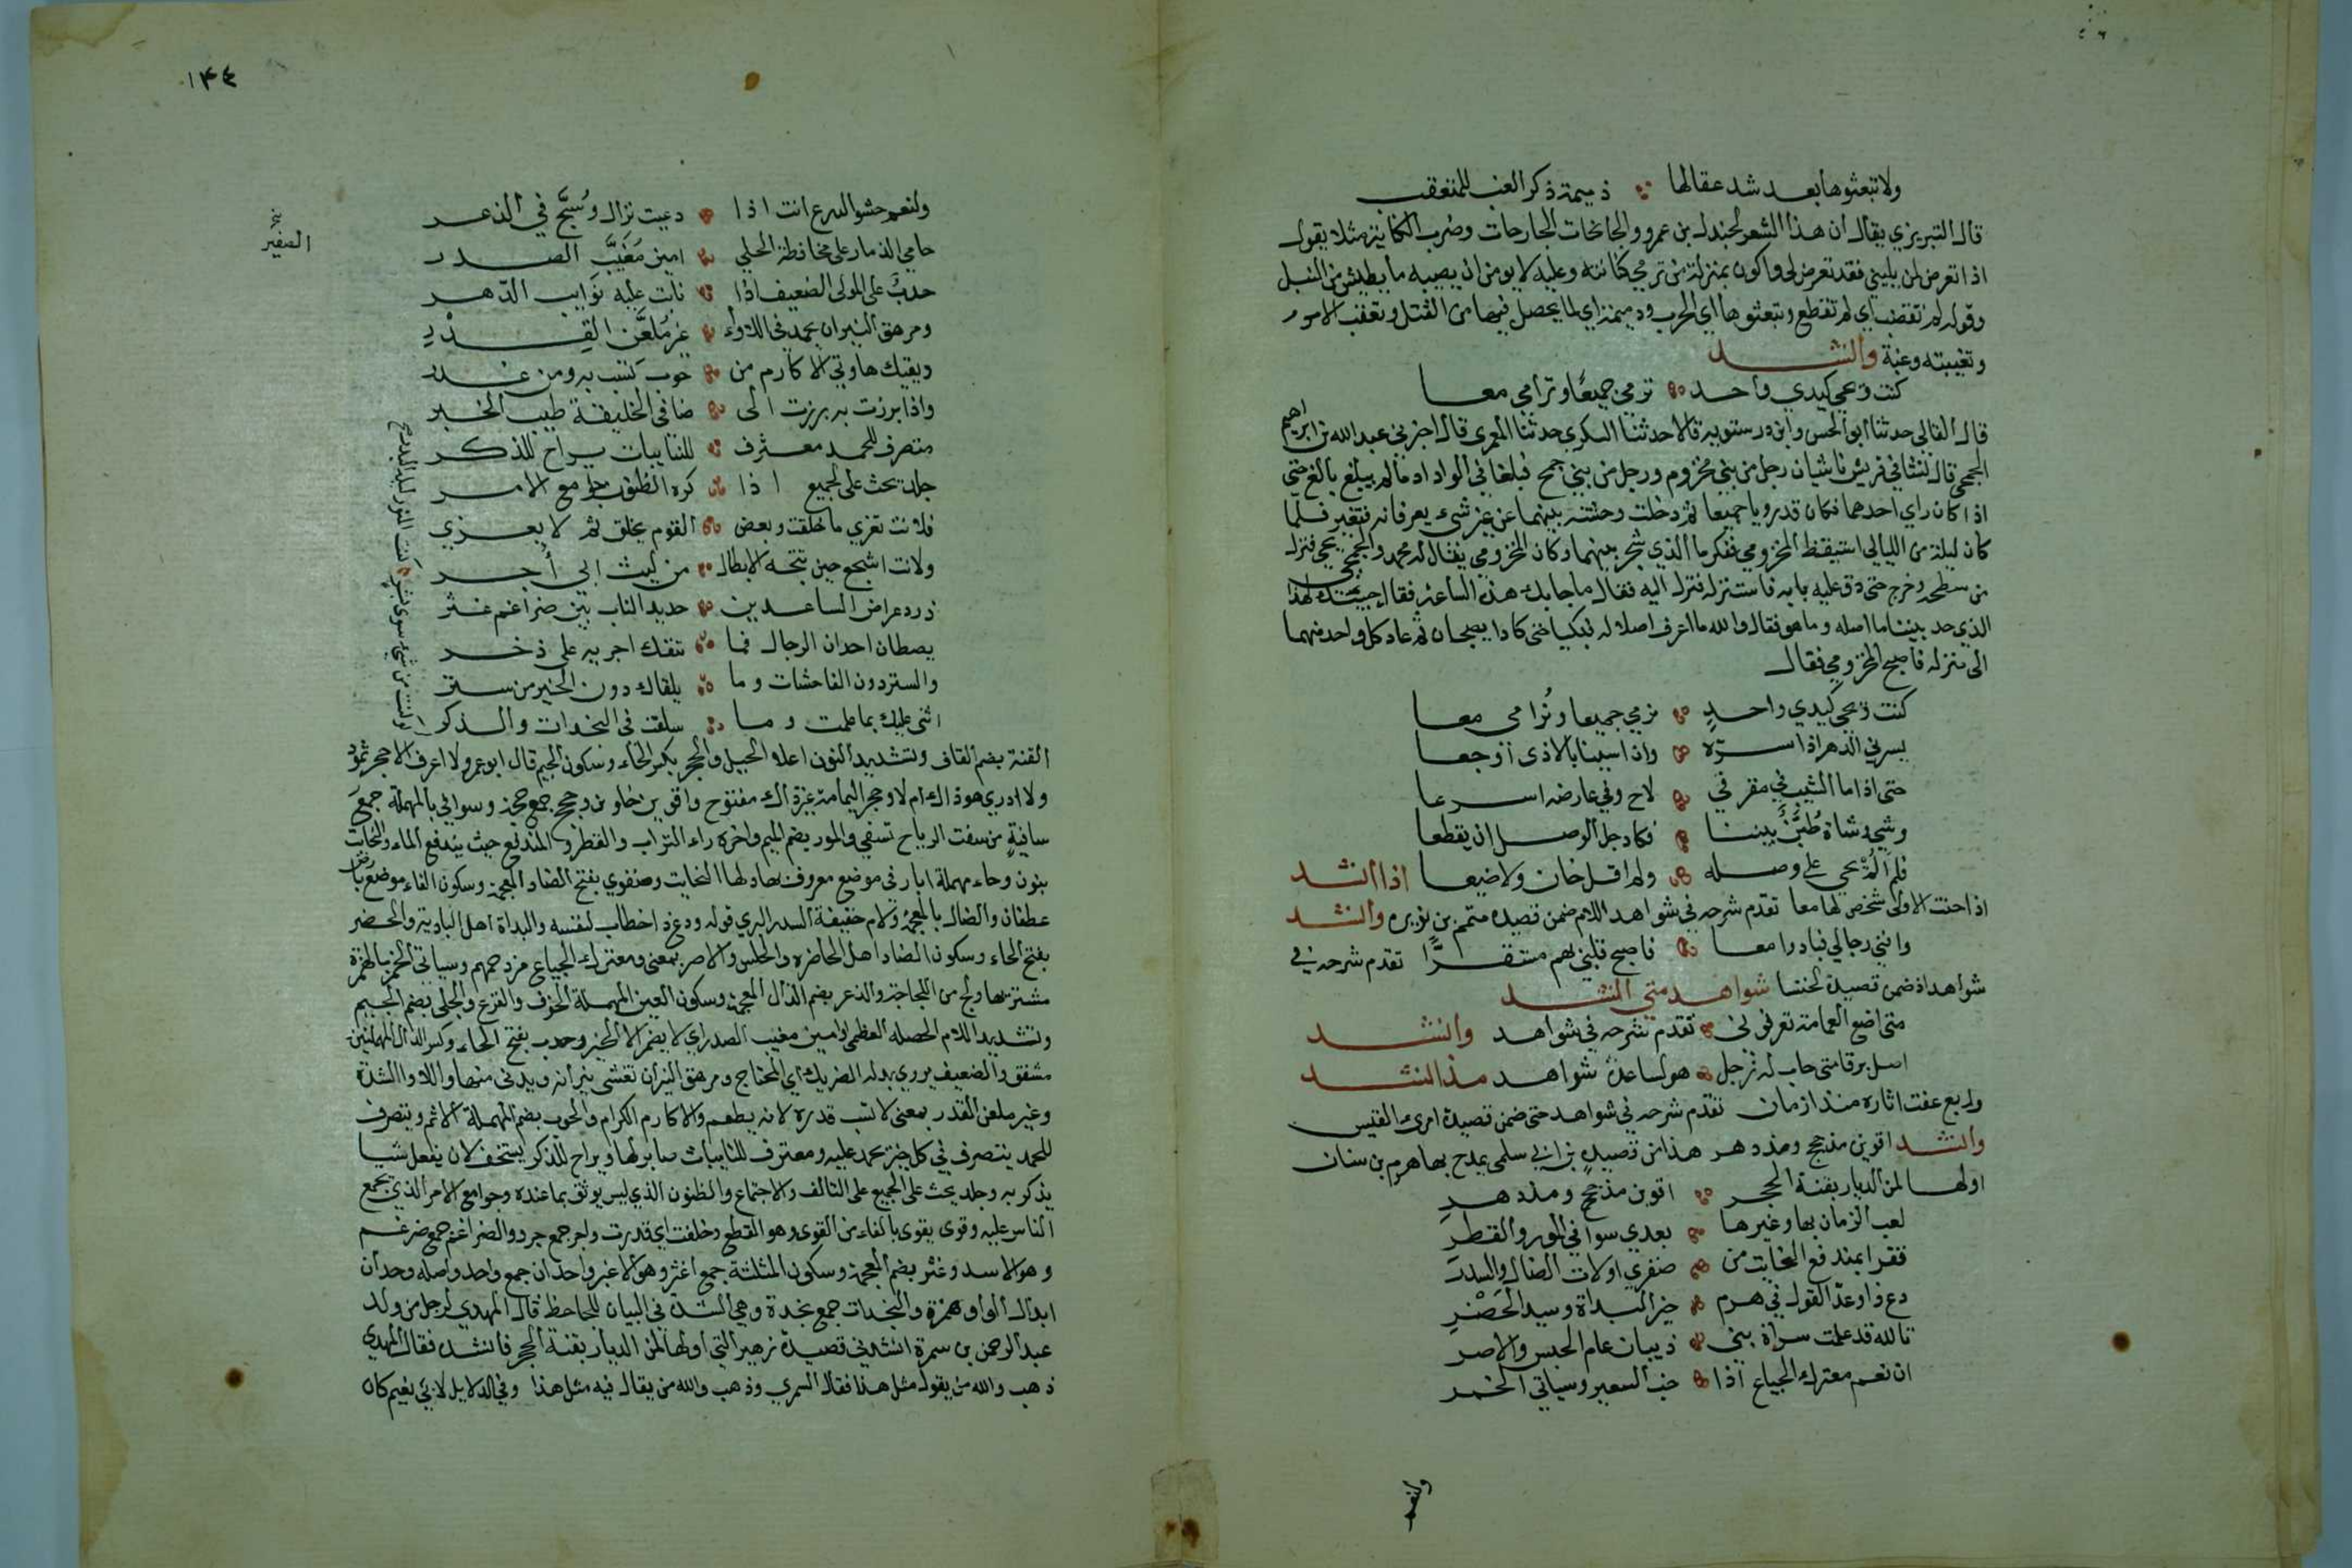 ولا تبعثوها بعد شد عقالها ذميمة ذكر الغب للمتعقب
قال التبريزي يقال ان هذا الشعر لجندل بن عمرو والجانحات الجارحات وضرب الكناية مثلا يقول
اذا تعرض لمن يليني فقد تعرض لي واكون بمنزلة من ترمي كنانته وعليه لا يومن ان يصيبه ما يطيش من النبل
وقوله لم تقضب اي لم تقطع وتبعثوها اي الحرب وذميمة اي لما يحصل فيها من القتل وتعقب الامور
وتغيبته وغبة وانشد
كنت ويحيى كيدي واحد نرمي جميعا ونرامى معا
قال القالي حدثنا ابو الحسن وابن درستويه قالا حدثنا السكري حدثنا المعمري قال اخبرني عبد الله بن ابراهيم
الجمحي قال نشا في قريش ناشيان رجل من بني مخزوم ورجل من بني جمح فبلغا في الوداد ما لم يبلغ بالغ حتى
اذا كان راي احدهما فكان قد رويا جميعا ثم دخلت وحشة بينهما عن غير شيء يعرفانه فتغير فلما
كان ليلة من الليالي استيقظ المخزومي ففكر ما الذي شجر بينهما وكان المخزومي يقال له محمد والجمحي يحيى فنزل
من سطحه وخرج حتى دق عليه بابه فاستنزله فنزل اليه فقال ما جابك هذه الساعة فقال جيتك لهذا
الذي حد بيننا ما اصله وما هو فقال والله ما اعرف اصلا له فبكيا حتى كادا يصبحان ثم عاد كل واحد منهما
الى منزله فاصبح المخزومي فقال
كنت ويحيى كيدي واحد نرمي جميعا ونرامى معا
يسرني الدهر اذا سره واذا اسينا بالاذى اوجعا
حتى اذا ما الشيب في مفرقي لاح وفي عارضه اسرعا
وشى وشاة طبن بيننا فكاد حبل الوصل ان يقطعا
فلم الم يحيى على وصله ولم اقل خان ولا ضيعا اذا انشد
اذا حنت الاولى شخصن لها معا تقدم شرحه في شواهد اللام ضمن قصيدة متمم بن نويرة وانشد
وافنى رجالي فبادوا معا فاصبح قلبي بهم مستفزا تقدم شرحه في
شواهد اذ ضمن قصيدة لخنسا شواهد متى انشد
متى اضع العمامة تعرفوني تقدم شرحه في شواهد وانشد
اسيل برقا متى حاب له زجل هو لساعدة شواهد منذ انشد
وربع عفت اثاره منذ ازمان تقدم شرحه في شواهد حتى ضمن قصيدة امرئ القيس
وانشد اقوين مذ حجج ومذ دهر هذا من قصيدة بن ابي سلمى يمدح بها هرم بن سنان
اولها لمن الديار بقنة الحجر اقوين مذ حجج ومذ دهر
لعب الزمان بها وغيرها بعدي سوافي المور والقطر
قفرا بمندفع النحايت من ضفوي اولات الضال والسدر
دع ذا وعد القول في هرم خير البداة وسيد الحضر
تالله قد علمت سراة بني ذبيان عام الحبس والاصر
ان نعم معترك الجياع اذا خب السعير وسيابي الخمر
ولنعم
١٤٤
ولنعم حشو الدرع انت اذا دعيت نزال ولج في الذعر
حامي الذمار على محافظة الجلي امين مغيب الصدر
حدب على المولى الضعيف اذا نابت عليه نوايب الدهر
ومرهق النيران يحمد في اللاواء غير ملعن القدر
ويقيك ما وقى الاكارم من حوب تسب به ومن غدر
واذا برزت به برزت الى ضافي الخليقة طيب الخبر
متصرف للحمد معترف للنايبات يراح للذكر
جلد يحث على الجميع اذا كره الظنون جوامع الامر
فلانت تفري ما خلقت وبعض القوم يخلق ثم لا يفري
ولانت اشجع حين تتجه الابطال من ليث ابي اجر
ورد عراض الساعدين حديد الناب بين ضراغم غثر
يصطاد احدان الرجال فما تنفك اجريه على ذخر
والستر دون الفاحشات وما يلقاك دون الخير من ستر
اثني عليك بما علمت وما سلفت في النجدات والذكر
لو كنت من شيء سوى بشر كنت المنور ليلة البدر صح
القنة بضم القاف وتشديد النون اعلا الجبل والحجر بكسر الحاء وسكون الجيم قال ابو عمرو لا اعرف الا حجر ثمود
ولا ادري هو ذاك ام لا وحجر اليمامة غير ذاك مفتوح واقوين خلون وحجج جمع حجة وسوافي بالمهملة جمع
سافية من سفت الرياح تسفي والمور بضم الميم واخره راء التراب والقطر والمندفع حيث يندفع الماء والنحايت
بنون وحاء مهملة ابار في موضع معروف يقال لها النحايت وضفوي بفتح الضاد المعجمة وسكون الفاء موضع بارض
غطفان والضال بالمعجمة ولام خفيفة السدر البري قوله ودع ذا خطاب لنفسه والبداة اهل البادية والحضر
بفتح الحاء وسكون الضاد اهل الحاضرة والحبس والاصر بمعنى ومعترك الجياع مزدحمهم وسيابي الخمر بالهمزة
مشتريها ولج من اللجاجة والذعر بضم الذال المعجمة وسكون العين المهملة الخوف والفزع والجلى بضم الجيم
وتشديد اللام الخصلة العظمى وامين مغيب الصدر اي لا يضمر الا الخير وحدب بفتح الحاء وكسر الدال المهملتين
مشفق والضعيف يروى بدله الضريك اي المحتاج ومرهق النيران تغشى نيرانه ويدنى منها واللاوا الشدة
وغير ملعن القدر بمعنى لا تسب قدره لانه يطعم والاكارم الكرام والحوب بضم المهملة الاثم ومتصرف
للحمد يتصرف في كل خير يحمد عليه ومعترف للنايبات صابر لها ويراح للذكر يستخف لان يفعل شيا
يذكر به وجلد يحث على الجميع على التالف والاجتماع والظنون الذي ليس يوثق بما عنده وجوامع الامر الذي يجمع
الناس عليه وقوى يقوى بالفاء من القوى وهو القطع وخلقت اي قدرت واجر جمع جرو والضراغم جمع ضرغم
وهو الاسد وغثر بضم المعجمة وسكون المثلثة جمع اغثر وهو الاغبر واحدان جمع واحد واصله وحدان
ابدال الواو همزة والنجدات جمع نجدة وهي الشدة في البيان للجاحظ قال المهدي لرجل من ولد
عبد الرحمن بن سمرة انشدني قصيدة زهير التي اولها لمن الديار بقنة الحجر فانشده فقال المهدي
ذهب والله من يقول مثل هذا فقال السمري وذهب والله من يقال فيه مثل هذا وفي الدلايل لابي نعيم كان